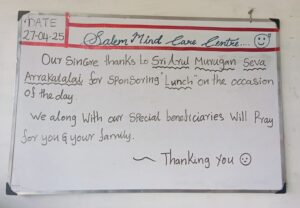 DATE
27-04-25
Salem Mind Care Centre....
Our sincre thanks to Sri Arul Murugan Seva
Arrakatalai for sponsoring "Lunch" on the occasion
of the day.
We along with our special beneficiaries will Pray
for you & your family.
~ Thanking you